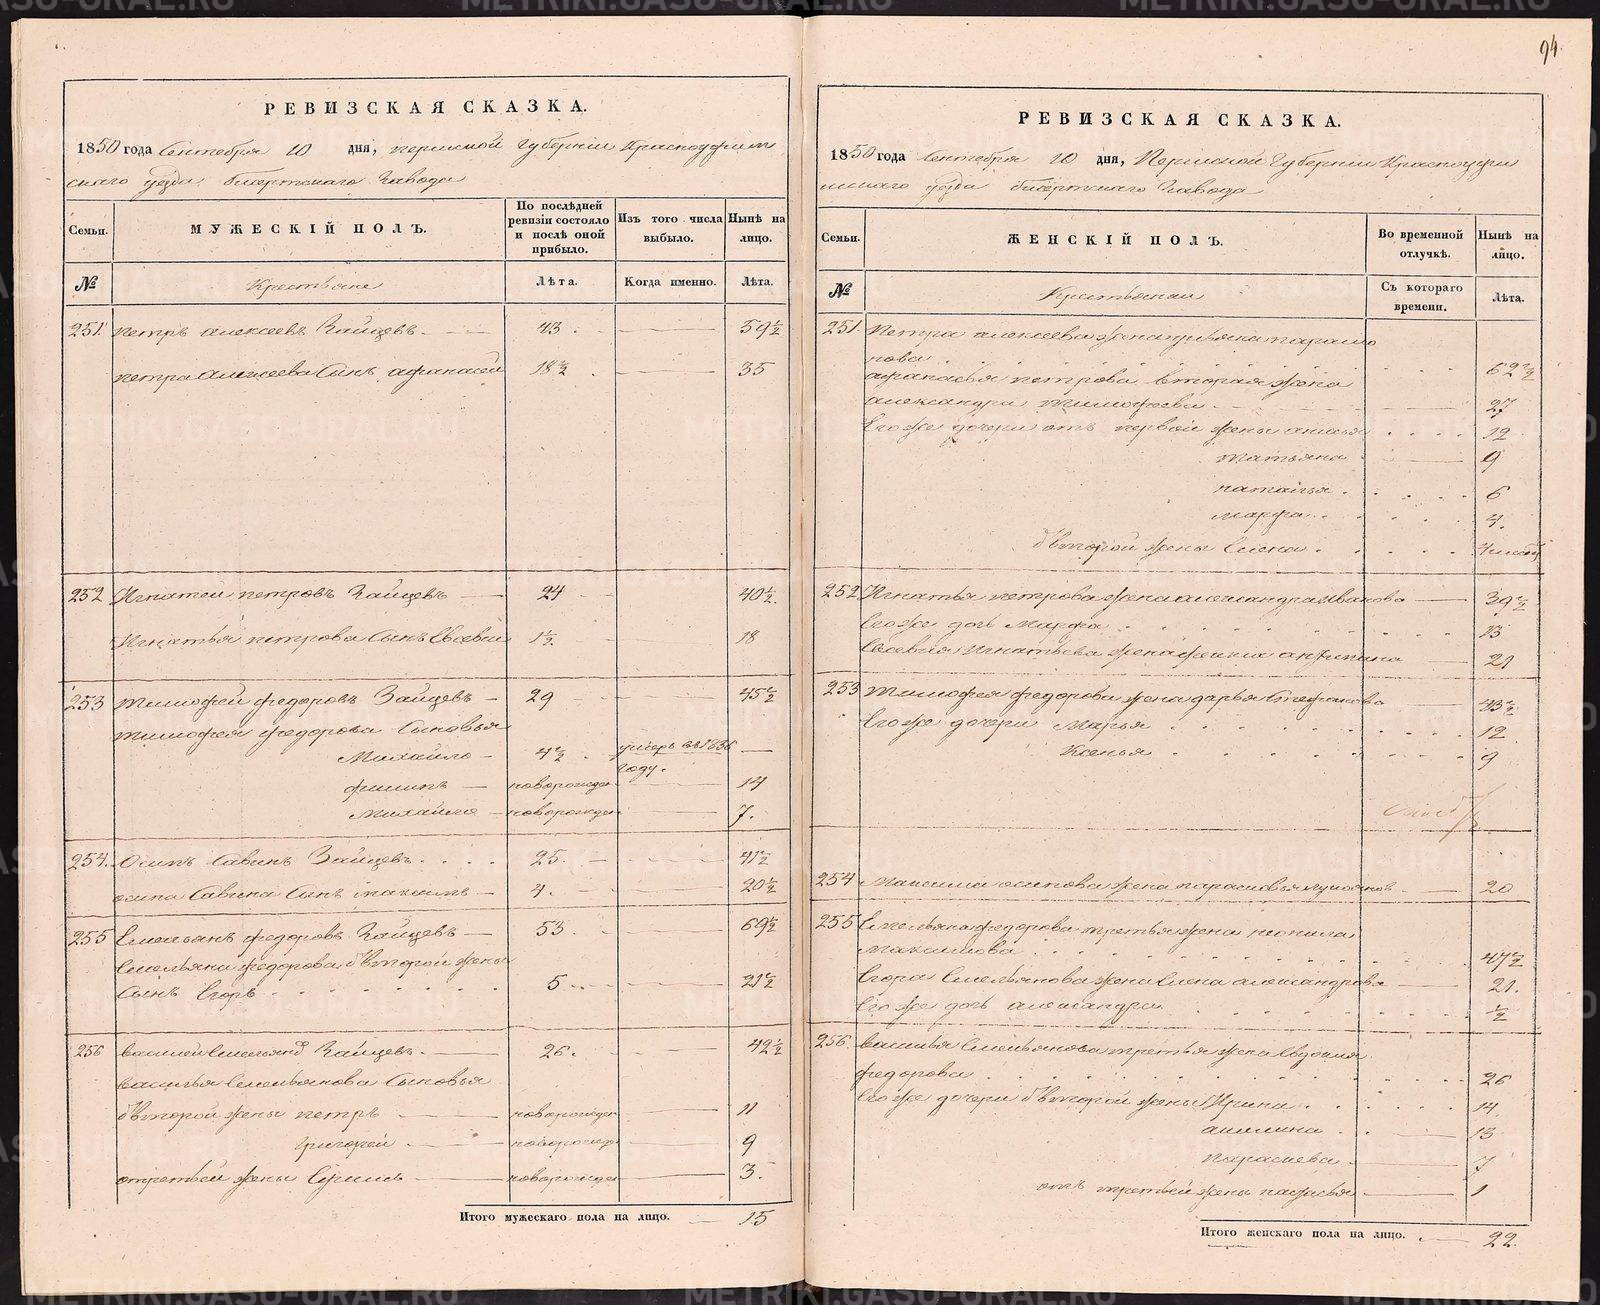 94.
РЕВИЗСКАЯ СКАЗКА.
1850 года Сентября 10 дня, пермской губерніи Красноуфим
скаго уезда бисертскаго Завода
Семьи.
МУЖЕСКІЙ ПОЛЪ.
По послѣдней ревизіи состояло и послѣ оной прибыло.
Изъ того числа выбыло.
Нынѣ на лицо.
№
Крестьяне
Лѣта.
Когда именно.
Лѣта.
251 петръ алексеевъ Зайцевъ 43. 59½
петра алексеева Сынъ афанасей 18½ 35
252 Игнатей петровъ Зайцевъ 24 40½.
Игнатья петрова Сынъ Евсевей 1½. 18
253 тимофей федоровъ Зайцевъ 29 45½
тимофея федорова Сыновья
Михайло 4½ умеръ въ 1836 году.
филипъ новорожден 14
Михайло новорожден 7.
254. Осипъ Савинъ Зайцевъ 25. 41½
осипа Савина Сынъ максимъ 4. 20½
255 Емельянъ федоровъ Зайцевъ 53. 69½
Емельяна федорова б второй жены
Сынъ Егоръ 5 21½
256 василей Емельянъ Зайцевъ 26. 42½
василья Емельянова Сыновья
б второй жены петръ новорожден 11
Григорей новорожд 9
отретьей жены новорожден 3.
Итого мужескаго пола на лицо. 15
РЕВИЗСКАЯ СКАЗКА.
1850 года Сентября 10 дня, Пермской Губерніи Красноуфи
мскаго уезда бисертскаго Завода
Семьи.
ЖЕНСКІЙ ПОЛЪ.
Во временной отлучкѣ.
Нынѣ на лицо.
№
Съ котораго времени.
Лѣта.
251 Петра алексеева жена
нова 62½
афанасья петрова вторая жена
александра тимофеева 27
Его же дочери отъ первой жены анисья 12
татьяна 9
наталья 6
марфа 4.
б второй жены Елена
252 Игнатья петрова жена александра Иванова 39½
Его же дочь Марфа 13
Евсевия Игнатьева жена антипина 21
253 тимофея федорова жена дарья Стефанова 43½
Его же дочери Марья 12
Ксенья 9
254 максима осипова жена парасковья 20
255 Емельяна федорова третья жена неонила
максимова 47½
Егора Емельянова жена Елена александрова 21.
Его же дочь александра ½
256. василья Емельянова третья жена Евдокия
федорова 26
Его же дочери б второй жены Ирина 14
акилина 13
парасковья 7
отъ третьей жены настасья 1
Итого женскаго пола на лицо. 22.
METRIKI.GASO-URAL.RU